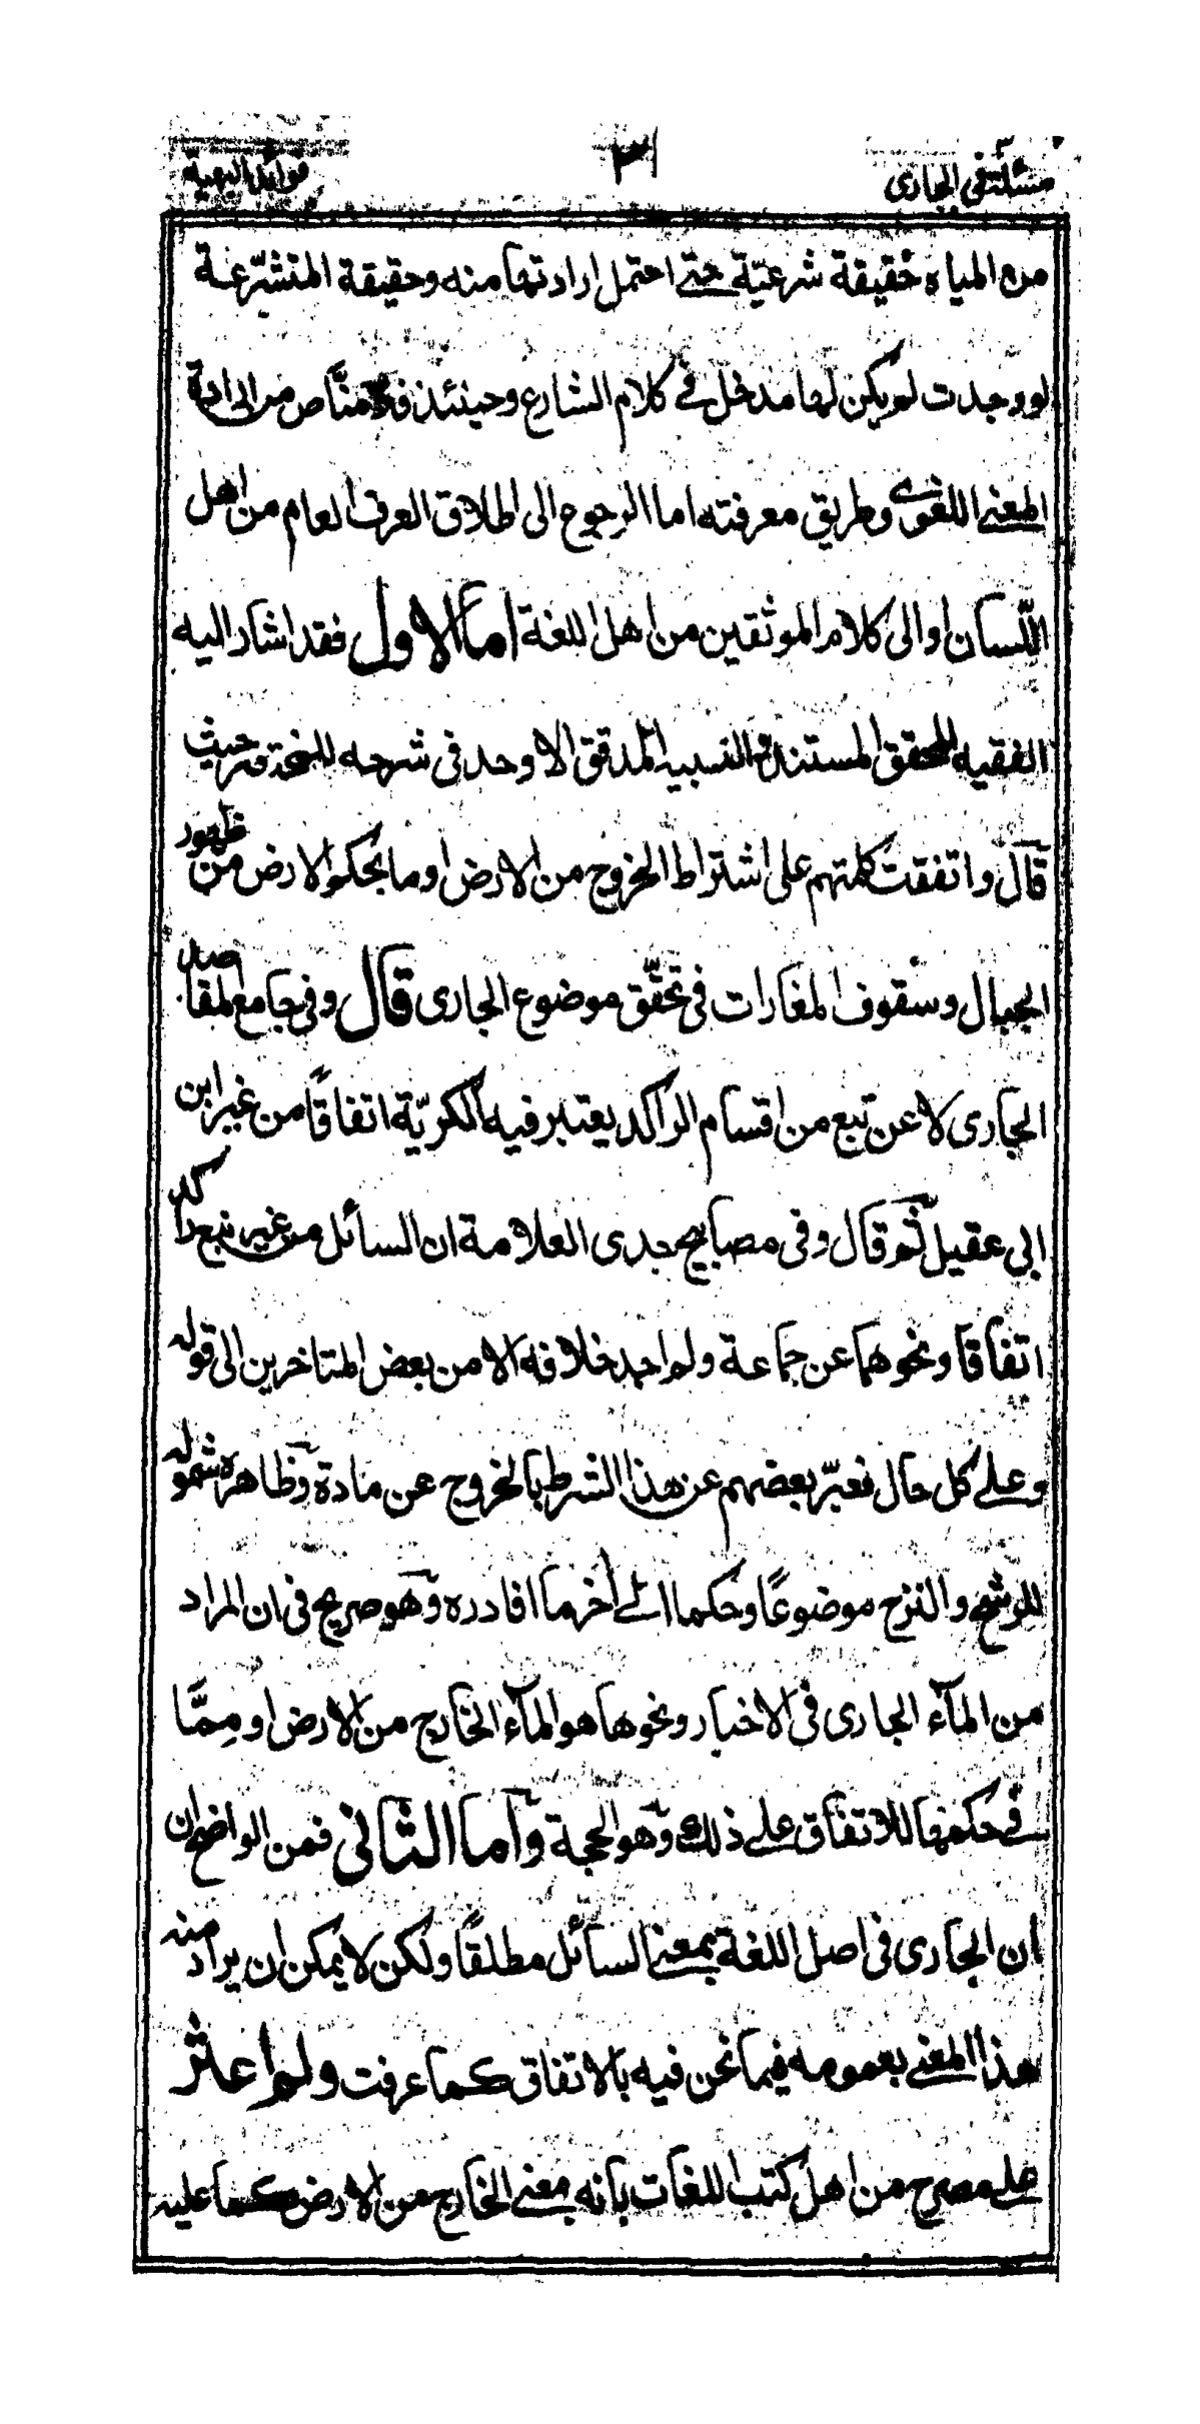 مسئلة في الجارى
٣١
فوائد البهية
من المياه حقيقة شرعيّة حتى احتمل ارادتها منه وحقيقة المتشرّعة
لو وجدت لم يكن لها مدخل في كلام الشارع وحينئذ فلا مناص من ارادة
المعنى اللغوى وطريق معرفته اما الرجوع الى اطلاق العرف العام من اهل
اللّسان او الى كلام الموثقين من اهل اللغة اما الاول فقد اشار اليه
الفقيه المحقق المستند النسبيه المدقق الاوحد في شرحه للمختصر حيث
قال واتفقت كلمتهم على اشتراط الخروج من الارض او ما بحكم الارض من ظهور
الجبال وسقوف المغارات فى تحقّق موضوع الجارى قال وفي جامع المقاصد
الجارى لا عن نبع من اقسام الراكد يعتبر فيه الكرّية اتفاقًا من غير ابن
ابى عقيل ثم قال وفى مصابيح جدى العلامة ان السائل من غير نبع راكد
اتفاقا ونحوهما عن جماعة ولم اجد خلافه الا من بعض المتاخرين الى قوله
وعلى كل حال فعبّر بعضهم عن هذا الشرط بالخروج عن مادة وظاهره شموله
للرشح والنزح موضوعًا وحكما الى أخر ما افاد ره وهو صريح فى ان المراد
من المآء الجارى فى الاخبار ونحوها هو المآء الخارج من الارض او مِمَّا
فى حكمها للاتفاق على ذلك وهو الحجة وأما الثانى فمن الواضح ان
ان الجارى فى اصل اللغة بمعنى السائل مطلقًا ولكن لا يمكن ان يراد منه
هذا المعنى بعمومه فيما نحن فيه بالاتفاق كما عرفت ولم اعثر
على مصرح من اهل كتب اللغات بانه بمعنى الخارج من الارض كما عليه